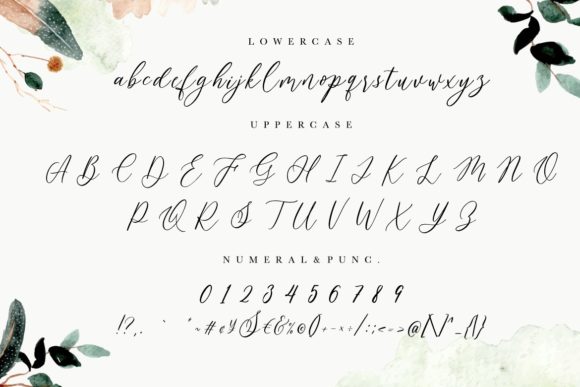 LOWERCASE
abcdefghijklmnopqrstuvwxyz
UPPERCASE
A B C D E F G H I J K L M N O
P Q R S T U V W X Y Z
NUMERAL&PUNC.
0 1 2 3 4 5 6 7 8 9